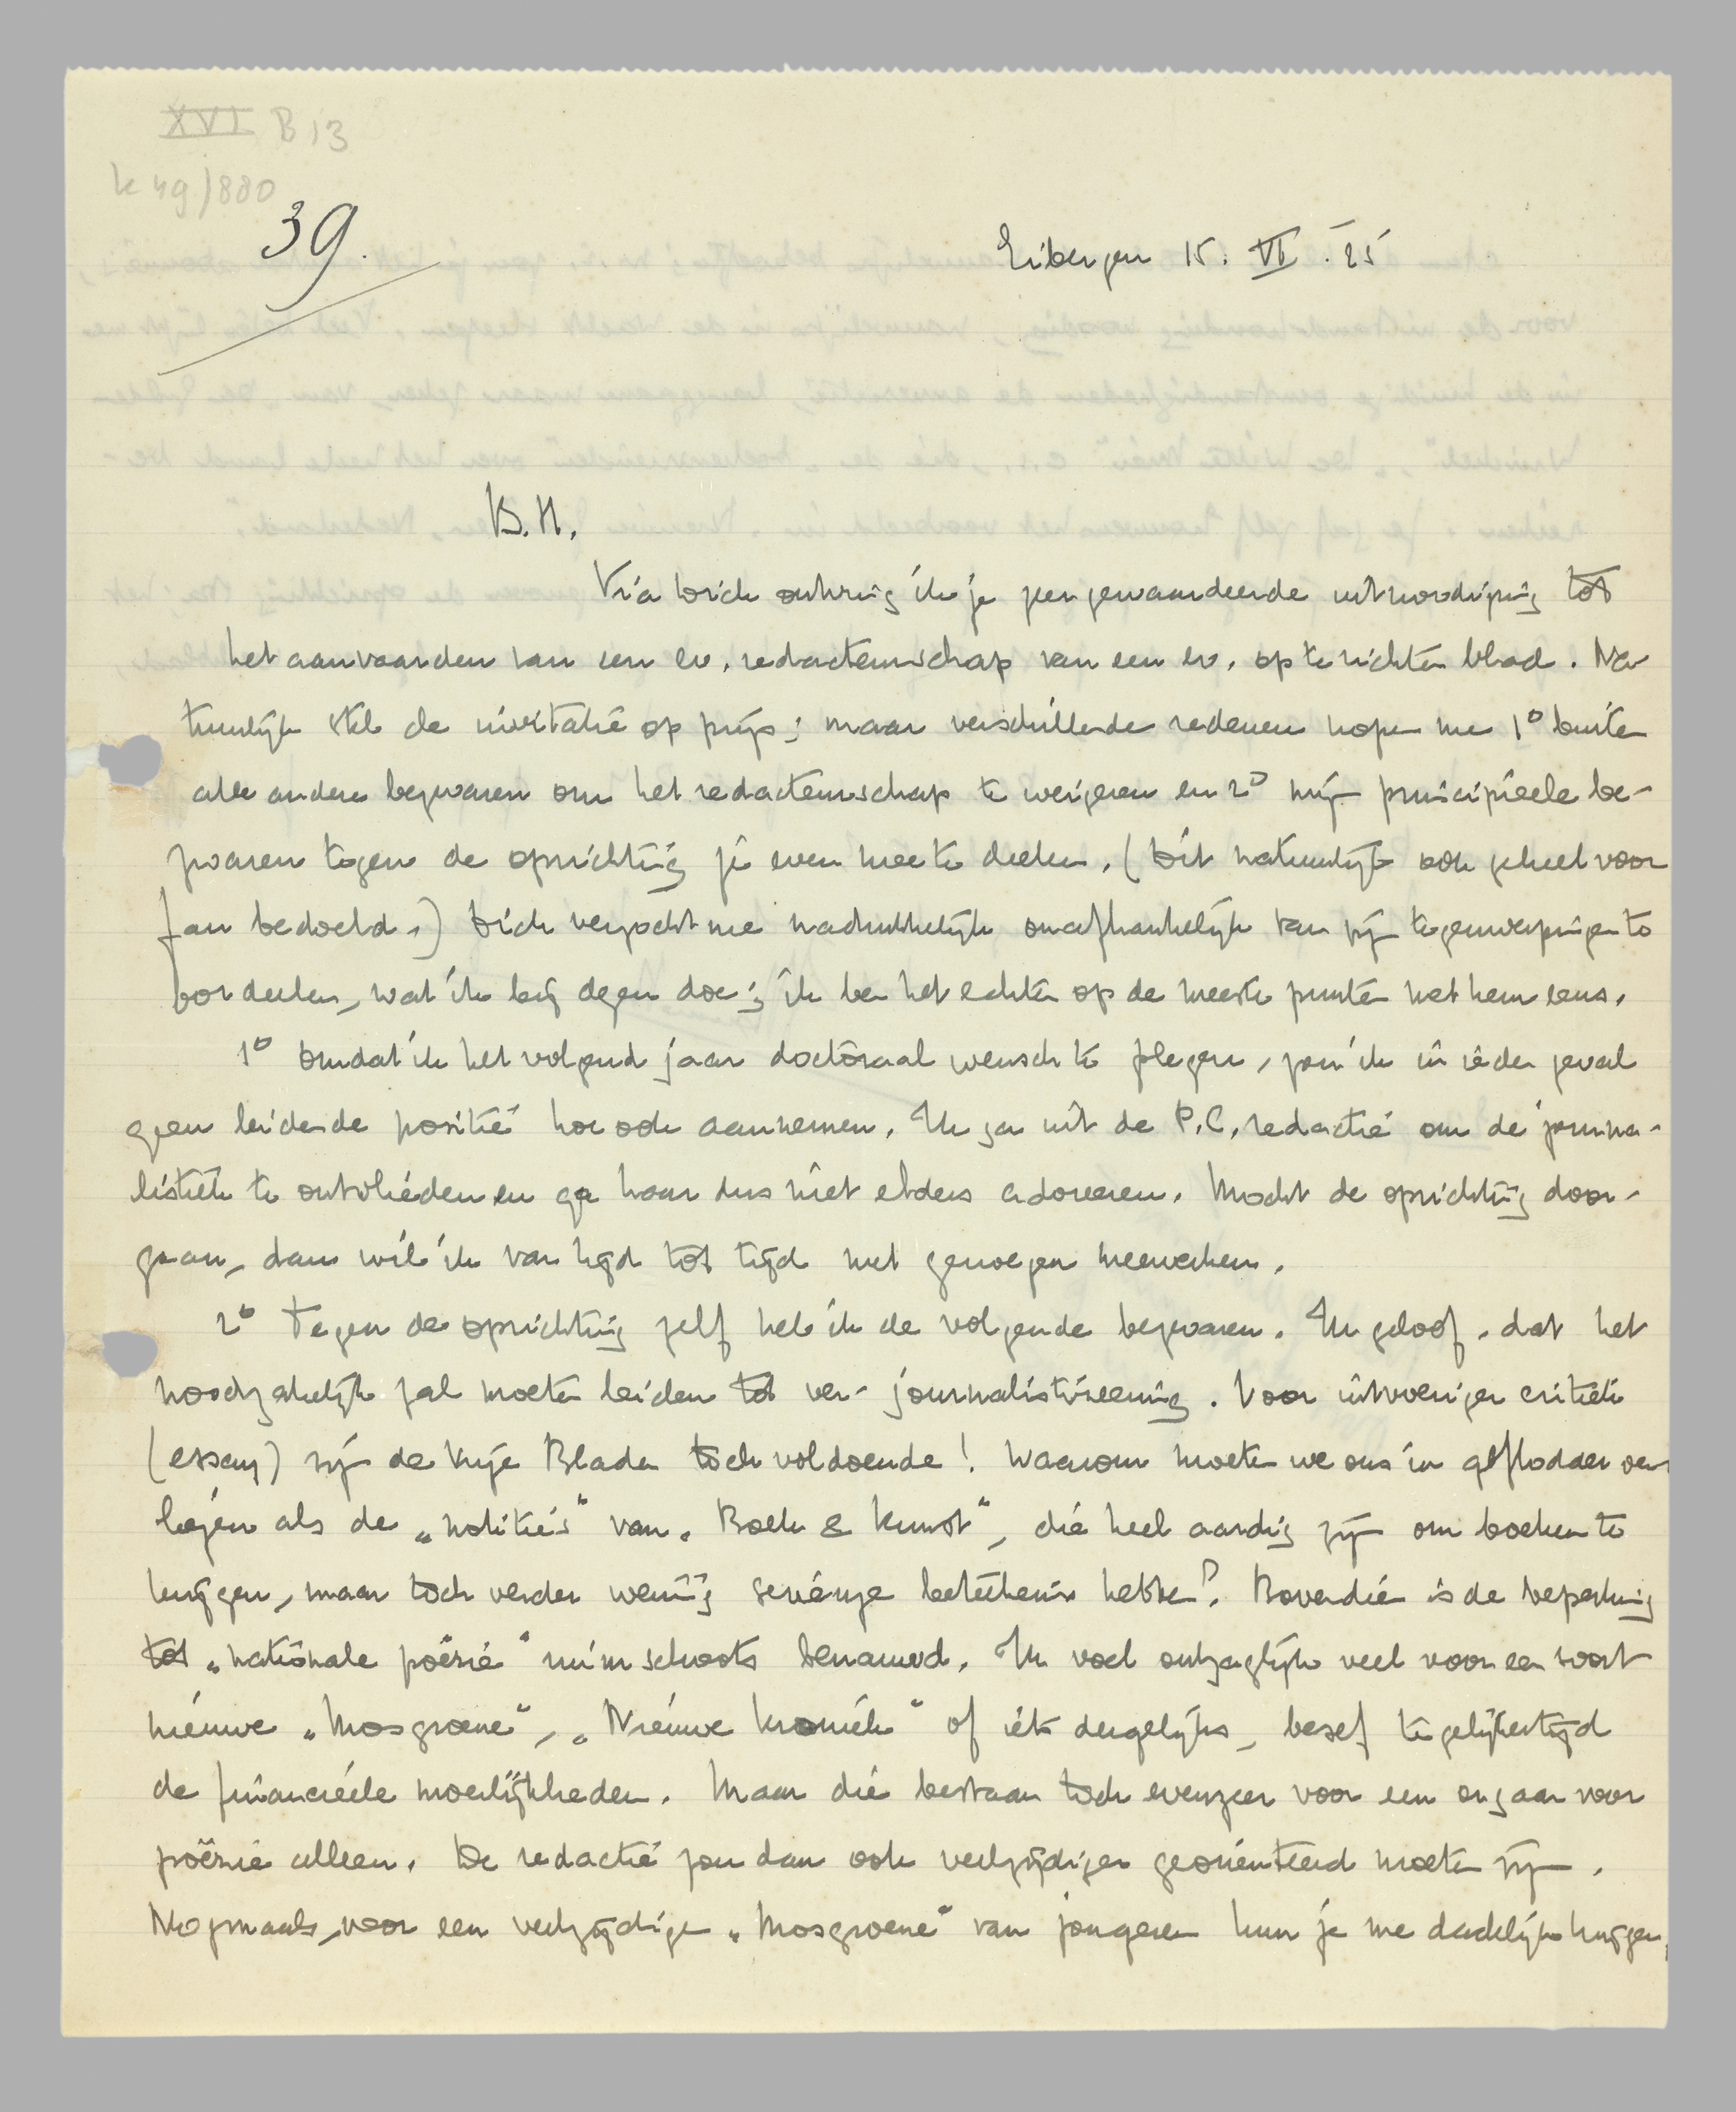 XVI B 13
k 49/880
39.
Eibergen 15. VI. '25
B. H.
Via Dick ontving ik je zeer gewaardeerde uitnoodiging tot
het aanvaarden van een ev. redacteurschap van een ev. op te richten blad. Na-
tuurlijk stel de invitatie op prijs; maar verschillende redenen nopen me 1° buiten
alle andere bezwaren om het redacteurschap te weigeren en 2° mijn principieele be-
zwaren tegen de oprichting je even mee te deelen. (Dit natuurlijk ook geheel voor
Jan bedoeld.) Dick verzocht me nadrukkelijk onafhankelijk van zijn tegenwerpingen te
oordeelen, wat ik bij dezen doe; ik ben het echter op de meeste punten met hem eens.
1° Omdat ik het volgend jaar doctoraal wensch te plegen, zou ik in ieder geval
geen leidende positie hoe ook aannemen. Ik ga uit de P.C. redactie om de journa-
listiek te ontvlieden en ga haar dus niet elders adoreeren. Mocht de oprichting door-
gaan, dan wil ik van tijd tot tijd met genoegen meewerken.
2° Tegen de oprichting zelf heb ik de volgende bezwaren. Ik geloof, dat het
noodzakelijk zal moeten leiden tot ver-journalistiseering. Voor uitvoeriger critiek
(essay) zijn de Vrije Bladen toch voldoende! Waarom moeten we ons in geflodder ver-
liezen als de „notities" van „Boek & Kunst", die heel aardig zijn om boeken te
krijgen, maar toch verder weinig serieuze beteekenis hebben? Bovendien is de beperking
tot „nationale poëzie" ruimschoots benauwd. Ik voel ontzaglijk veel voor een soort
nieuwe „Mosgroene", „Nieuwe Kroniek" of iets dergelijks, besef tegelijkertijd
de financieele moeilijkheden. Maar die bestaan toch evenzeer voor een orgaan voor
poëzie alleen. De redactie zou dan ook veelzijdiger georiënteerd moeten zijn.
Nogmaals, voor een veelzijdige „Mosgroene" van jongeren kun je me dadelijk krijgen,